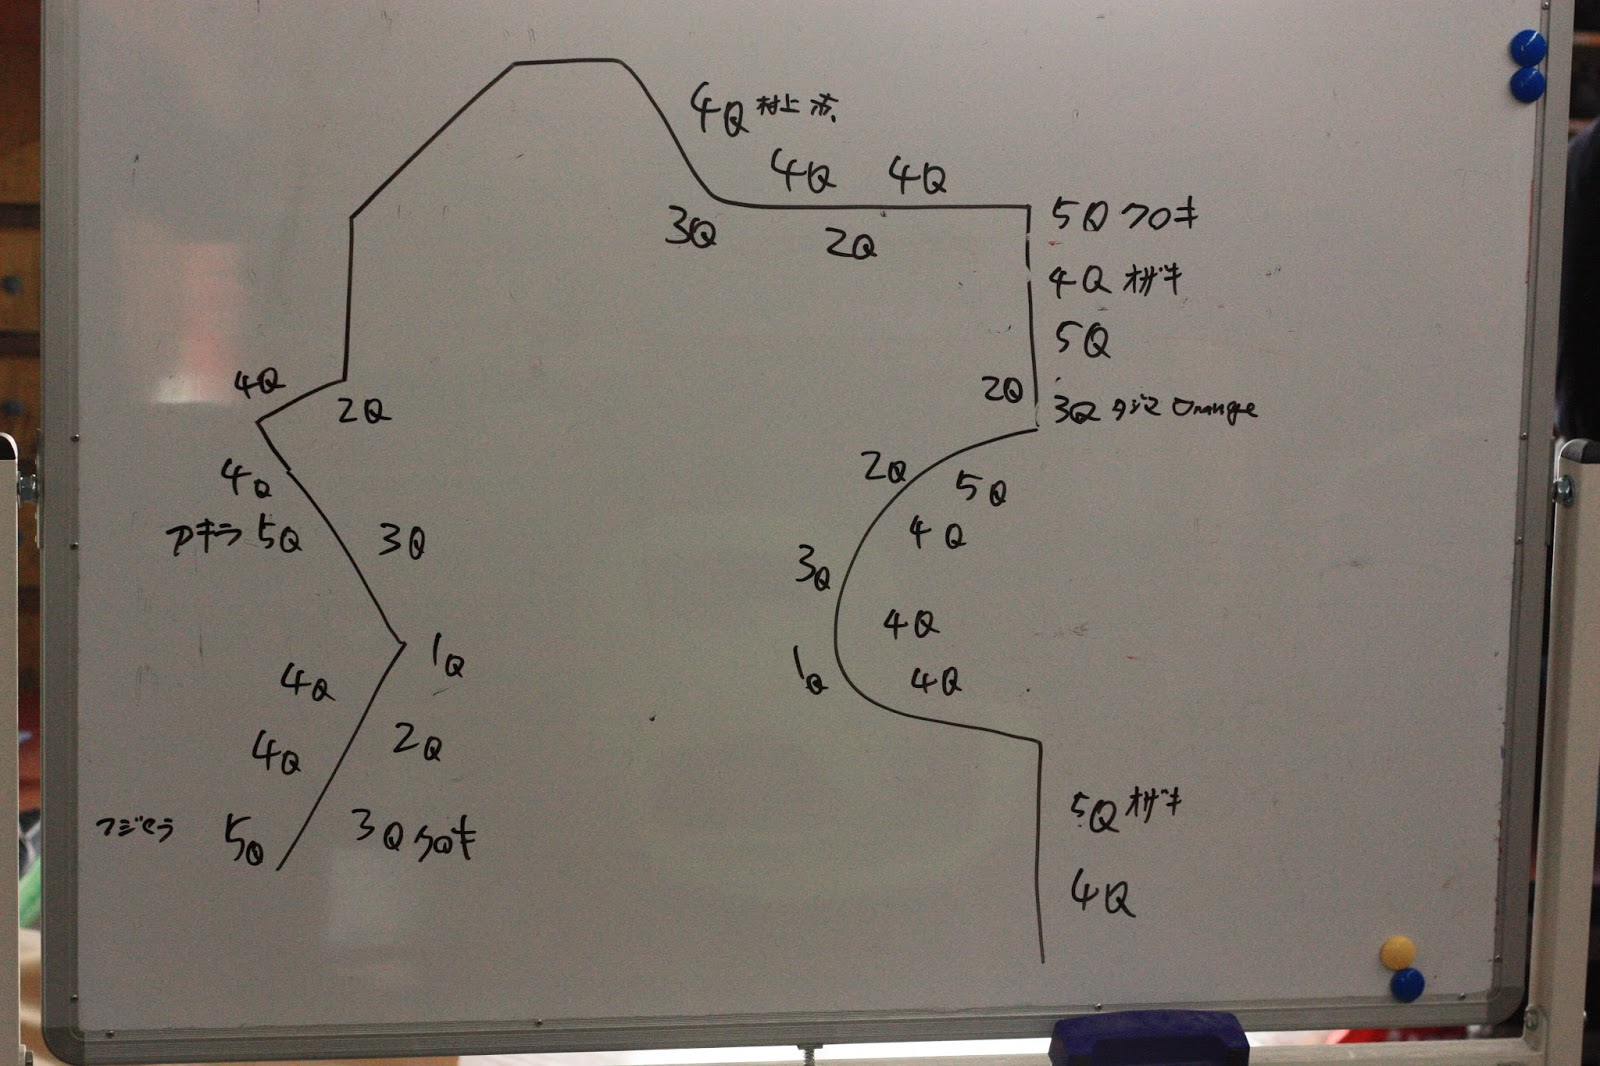 4Q 村上 赤
4Q 4Q
3Q 2Q
5Q クロキ
4Q オザキ
5Q
2Q 3Q タジマ Orange
4Q 2Q
2Q 5Q
4Q
4Q
アキラ 5Q 3Q
3Q
4Q
1Q 4Q
4Q 1Q
4Q 2Q
フジセラ 5Q 3Q クロキ
5Q オザキ
4Q